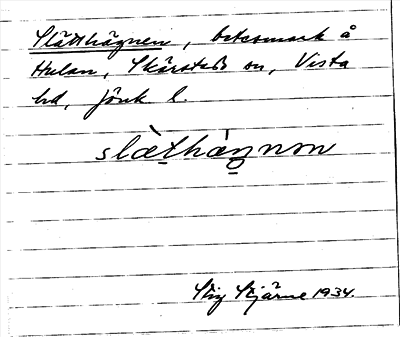 Slätthägnen, betesmark å
Hulan, Skärstads sn, Vista
hd, Jönk l.
slæ̀thæ̀ŋnən
Stig Stjärne 1934.